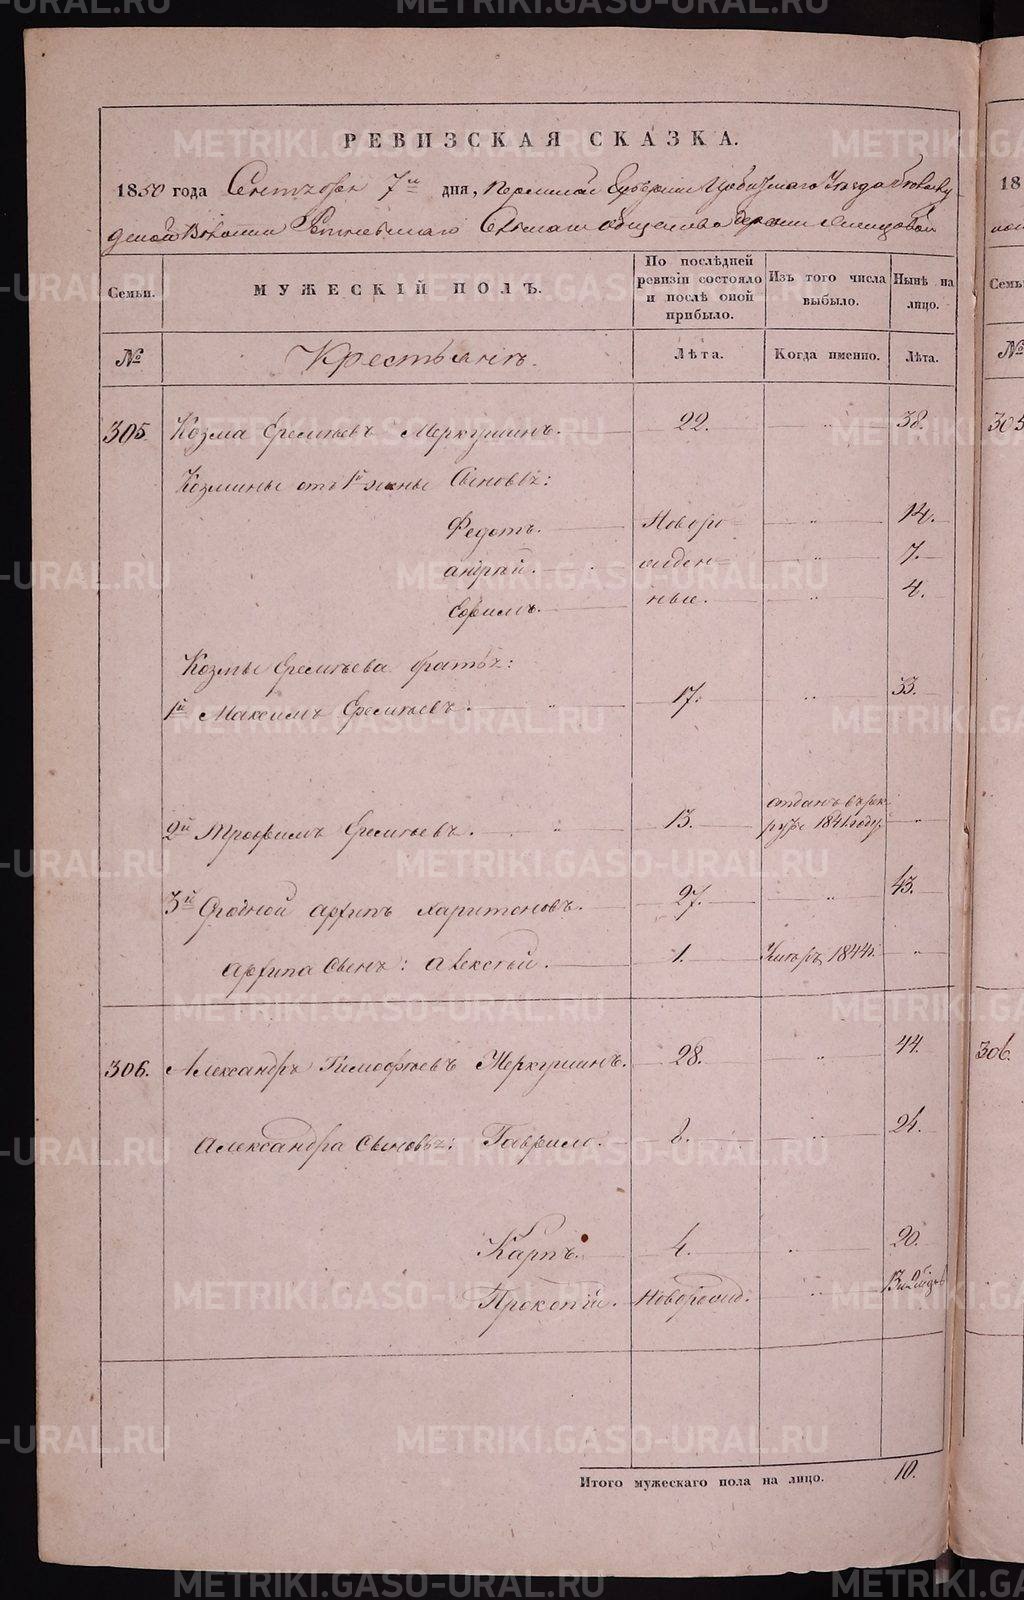 METRIKI.GASO-URAL.RU
РЕВИЗСКАЯ СКАЗКА.
1850 года Сентября 7го дня, Пермской Губернии Ирбитскаго Уезда
Волости Сельскаго общества деревни
Семьи.
МУЖЕСКІЙ ПОЛЪ.
По послѣдней ревизіи состояло и послѣ оной прибыло.
Изъ того числа выбыло.
Нынѣ на лицо.
№
Крестьянъ.
Лѣта.
Когда именно.
Лѣта.
305. Козма Еремѣевъ Меркушинъ. 22. „ 38.
Козмины отъ 1й жены Сыновья:
Федотъ. Новоро „ 14.
Андрей. жден „ 7.
Ефимъ. ные. „ 4.
Козмы Еремѣева братья:
1й Максимъ Еремѣевъ. 17. „ 33.
2й Трофимъ Еремѣевъ. 13. отданъ въ рек
руты 1841 году. „
3й Сродной Архипъ Харитоновъ. 27. „ 43.
Архипа Сынъ: Алексѣй. 1. Умеръ 1844г. „
306. Александръ Тимофѣевъ Меркушинъ. 28. „ 44.
Александра Сыновья: Гаврило. 8. „ 24.
Карпъ. 4. „ 20.
Прокопій. Новорожд. „ 13
Итого мужескаго пола на лицо. 10.
18
Семьи
№
305
306.